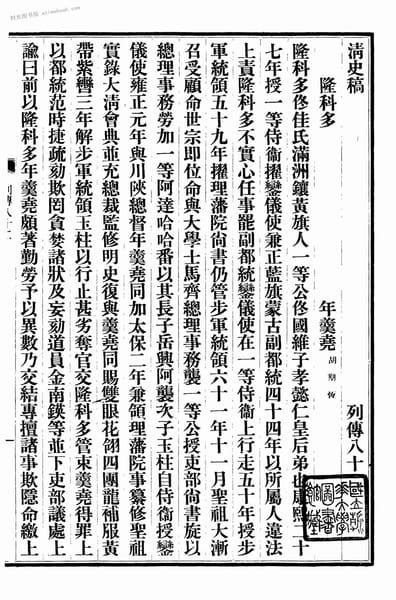 清史稿 列傳八十
隆科多 年羹堯 胡期恆
隆科多佟佳氏滿洲鑲黃旗人一等公佟國維子孝懿仁皇后弟也康熙二十
七年授一等侍衞擢鑾儀使兼正藍旗蒙古副都統四十四年以所屬人違法
上責隆科多不實心任事罷副都統鑾儀使在一等侍衞上行走五十年授步
軍統領五十九年擢理藩院尙書仍管步軍統領六十一年十一月聖祖大漸
召受顧命世宗卽位命與大學士馬齊總理事務襲一等公授吏部尙書旋以
總理事務勞加一等阿達哈哈番以其長子岳興阿襲次子玉柱自侍衞授鑾
儀使雍正元年與川陝總督年羹堯同加太保二年兼領理藩院事纂修聖祖
實錄大清會典並充總裁監修明史復與羹堯同賜雙眼花翎四團龍補服黃
帶紫轡三年解步軍統領玉柱以行止甚劣奪官交隆科多管束羹堯得罪上
以都統范時捷疏劾欺罔貪婪諸狀及妄劾道員金南鍈等並下吏部議處上
諭曰前以隆科多年羹堯頗著勤勞予以異數乃交結專擅諸事欺隱命繳上